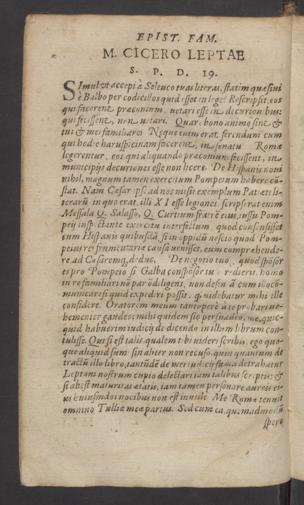 EPIST. FAM.
M. CICERO LEPTAE
S. P. D. 19.
SImul vt accepi à Seleuco tuas literas, statim quæsiui
è Balbo per codicillos quid esset in lege. Rescripsit, eos
qui facerent præconium, vetari esse in decurionibus:
qui fecissent, non vetari. Quare bono animo sint &
tui & mei familiares. Neque enim erat ferendum: cum
qui hodie haruspicinam facerent, in senatu Romæ
legerentur, eos qui aliquando præconium fecissent, in
municipijs decuriones esse non licere. De Hispanis noui
nihil, magnum tamen exercitum Pompeium habere con-
stat. Nam Cæsar ipse ad nos misit exemplum Paciæci li-
terarum in quo erat, illi XI esse legiones. scripserat enim
Messala Q. Salasso, Q. Curtium fratrem eius, iussu Pom-
peij inspectante exercitu interfectum, quod consensisset
cum Hispanis quibusdam, si in oppidum nescio quod Pom-
peius rei frumentariæ causa venisset, eum comprehende-
re ad Cæsaremq; deduc. De negotio tuo, quod sponsor
es pro Pompeio si Galba consponsor tuus redierit, homo
in re familiari non parum diligens, non desinam cum illo co-
municare si quid expediri possit. quod videbatur mihi ille
confidere. Oratorem meum tantopere à te probari ve-
hementer gaudeo. mihi quidem sic persuadeo, me, quic-
quid habuerim iudicij de dicendo in illum librum con-
tulisse. Qui si est talis, qualem tibi videri scribis, ego quo-
que aliquid sum: sin aliter non recuso, quin quantum de-
tractum illo libro, tantundem de mei iudicij fama detrahatur
Leptam nostrum cupio delectari iam talibus scriptis: &
si abest maturitas ætatis, iam tamen personare aureis ei-
us huiusmodi uocibus non est inutile. Me Romæ tenuit
omnino Tulliæ meæ partus. Sed cum ea, quemadmodum
spero